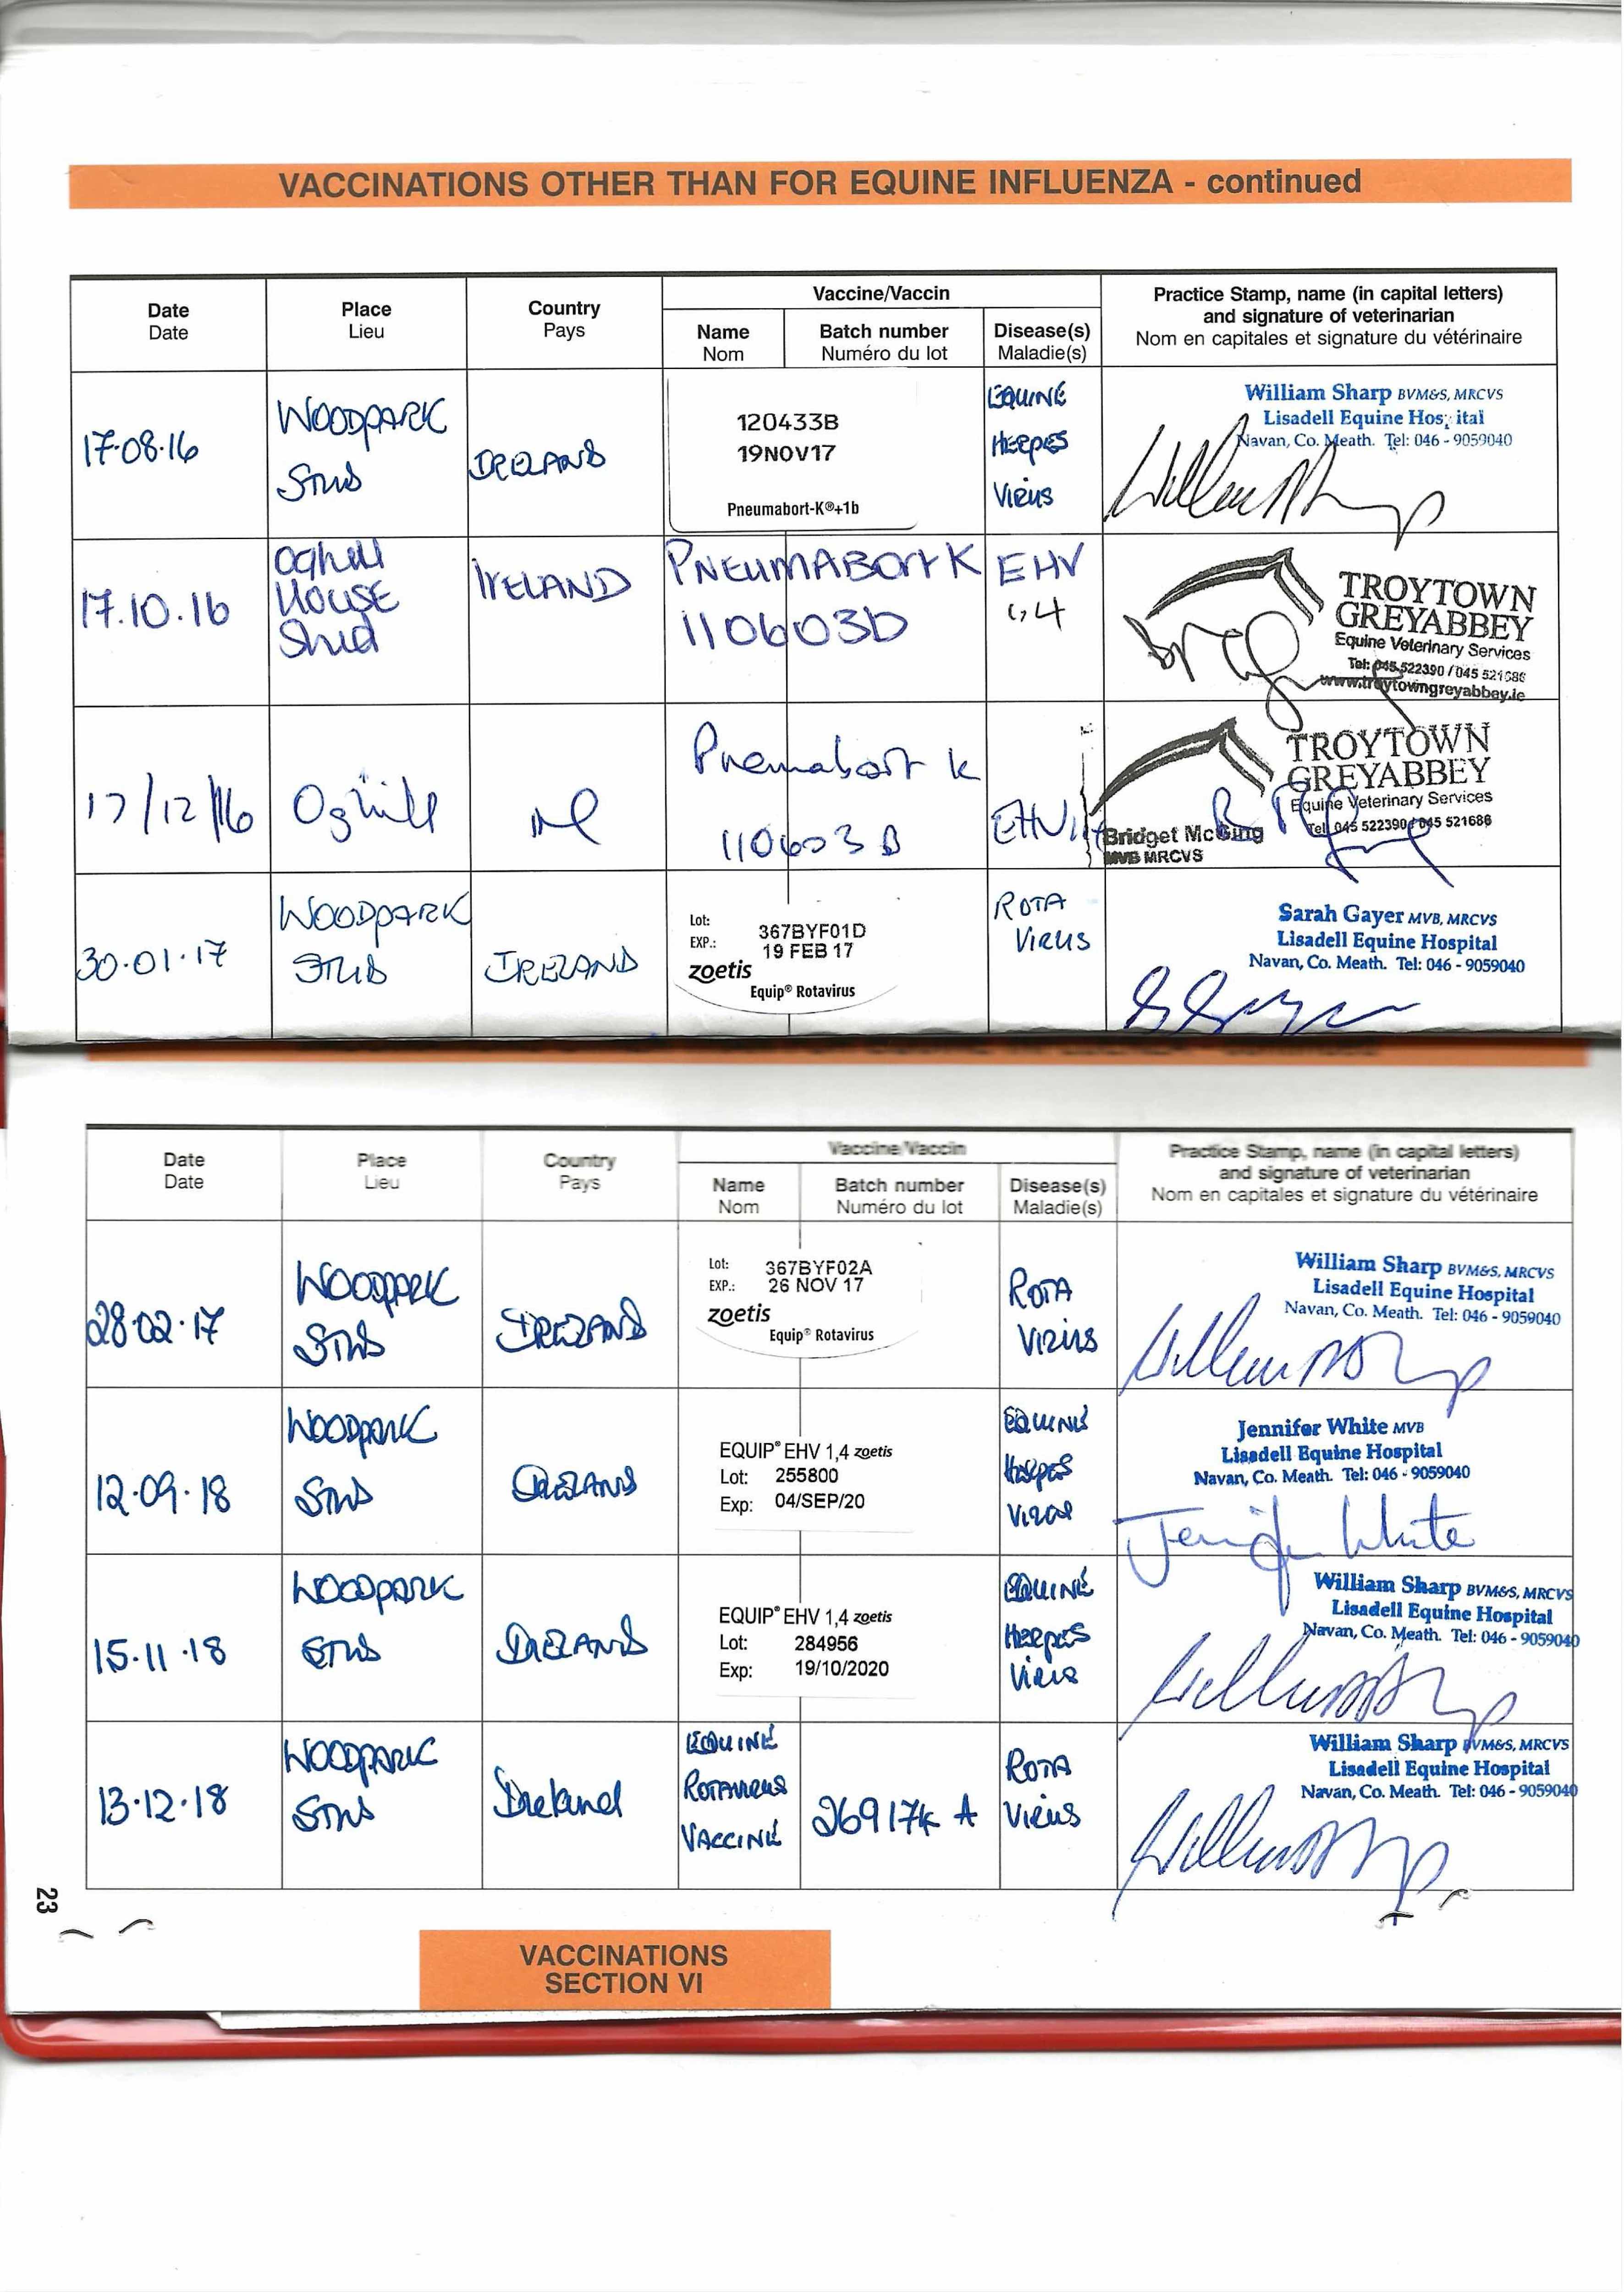 VACCINATIONS OTHER THAN FOR EQUINE INFLUENZA - continued
Date
Date
Place
Lieu
Country
Pays
Vaccine/Vaccin
Name
Nom
Batch number
Numéro du lot
Disease(s)
Maladie(s)
Practice Stamp, name (in capital letters)
and signature of veterinarian
Nom en capitales et signature du vétérinaire
17.08.16
WOODPARK
STUD
IRELAND
120433B
19NOV17
Pneumabort-K®+1b
EQUINE
HERPES
VIRUS
William Sharp BVM&S, MRCVS
Lisadell Equine Hos ital
Navan, Co. Meath. Tel: 046 - 9059040
17.10.16
Oghill
House
Stud
IRELAND
PNEUMABORT K
110603D
EHV
1,4
TROYTOWN
GREYABBEY
Equine Veterinary Services
Tel: 045 522390 / 045 521686
www.troytowngreyabbey.ie
17/12/16
Oghill
Irl
Pneumabort K
110603 B
EHV 1,4
TROYTOWN
GREYABBEY
Equine Veterinary Services
Tel 045 522390 / 045 521686
Bridget McGing
MVB MRCVS
30.01.17
WOODPARK
STUD
IRELAND
Lot: 367BYF01D
EXP.: 19 FEB 17
zoetis
Equip® Rotavirus
ROTA
VIRUS
Sarah Gayer MVB, MRCVS
Lisadell Equine Hospital
Navan, Co. Meath. Tel: 046 - 9059040
Date
Date
Place
Lieu
Country
Pays
Vaccine/Vaccin
Name
Nom
Batch number
Numéro du lot
Disease(s)
Maladie(s)
Practice Stamp, name (in capital letters)
and signature of veterinarian
Nom en capitales et signature du vétérinaire
28.02.17
WOODPARK
STUD
IRELAND
Lot: 367BYF02A
EXP.: 26 NOV 17
zoetis
Equip® Rotavirus
ROTA
VIRUS
William Sharp BVM&S, MRCVS
Lisadell Equine Hospital
Navan, Co. Meath. Tel: 046 - 9059040
12.09.18
WOODPARK
STUD
IRELAND
EQUIP® EHV 1,4 zoetis
Lot: 255800
Exp: 04/SEP/20
EQUINE
HERPES
VIRUS
Jennifer White MVB
Lisadell Equine Hospital
Navan, Co. Meath. Tel: 046 - 9059040
Jennifer White
15.11.18
WOODPARK
STUD
IRELAND
EQUIP® EHV 1,4 zoetis
Lot: 284956
Exp: 19/10/2020
EQUINE
HERPES
VIRUS
William Sharp BVM&S, MRCVS
Lisadell Equine Hospital
Navan, Co. Meath. Tel: 046 - 9059040
13.12.18
WOODPARK
STUD
Ireland
EQUINE
ROTAVIRUS
VACCINE
26917K A
ROTA
VIRUS
William Sharp BVM&S, MRCVS
Lisadell Equine Hospital
Navan, Co. Meath. Tel: 046 - 9059040
23
VACCINATIONS
SECTION VI